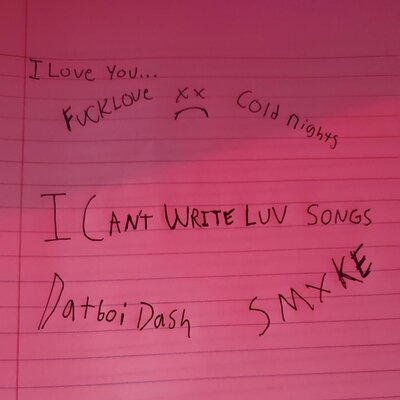 I Love You...
FUCKLOVE xx Cold nights
I CANT WRITE LUV SONGS
Datboi Dash SMXKE